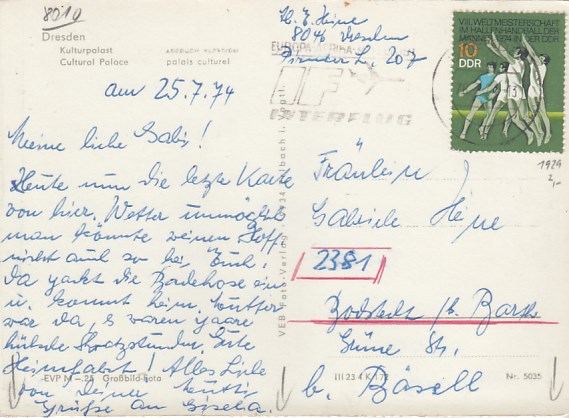 8010
Dresden
Kulturpalast
Cultural Palace
palais culturel
H. E. Heine
8046 Dresden
Pirnaer L. 207
EUROPA-AFRIKA-
IF
INTERFLUG
VIII. WELTMEISTERSCHAFT
IM HALLENHANDBALL DER
MÄNNER 1974 IN DER DDR
10
DDR
1929
2,-
am 25.7.74
Meine liebe Gabi!
Heute nun die letzte Karte
von hier. Wetter unmöglich
man könnte weinen. Hoff.
nicht auch so bei Euch.
Da packt die Badehose ein
u. kommt heim.
war da, es waren paar
hübsche Schwatzstunden. Gute
Heimfahrt! Alles Liebe
von Deiner Mutti
Grüße an Gisela.
VEB Foto-Verlag
Fräulein
Gabriele Heine
2381
Bodstedt b/ Barth
Grüne Str.
b. Bäsell
EVP M -,25 Großbild-Foto
III 23 4 K 1 72
Nr. 5035